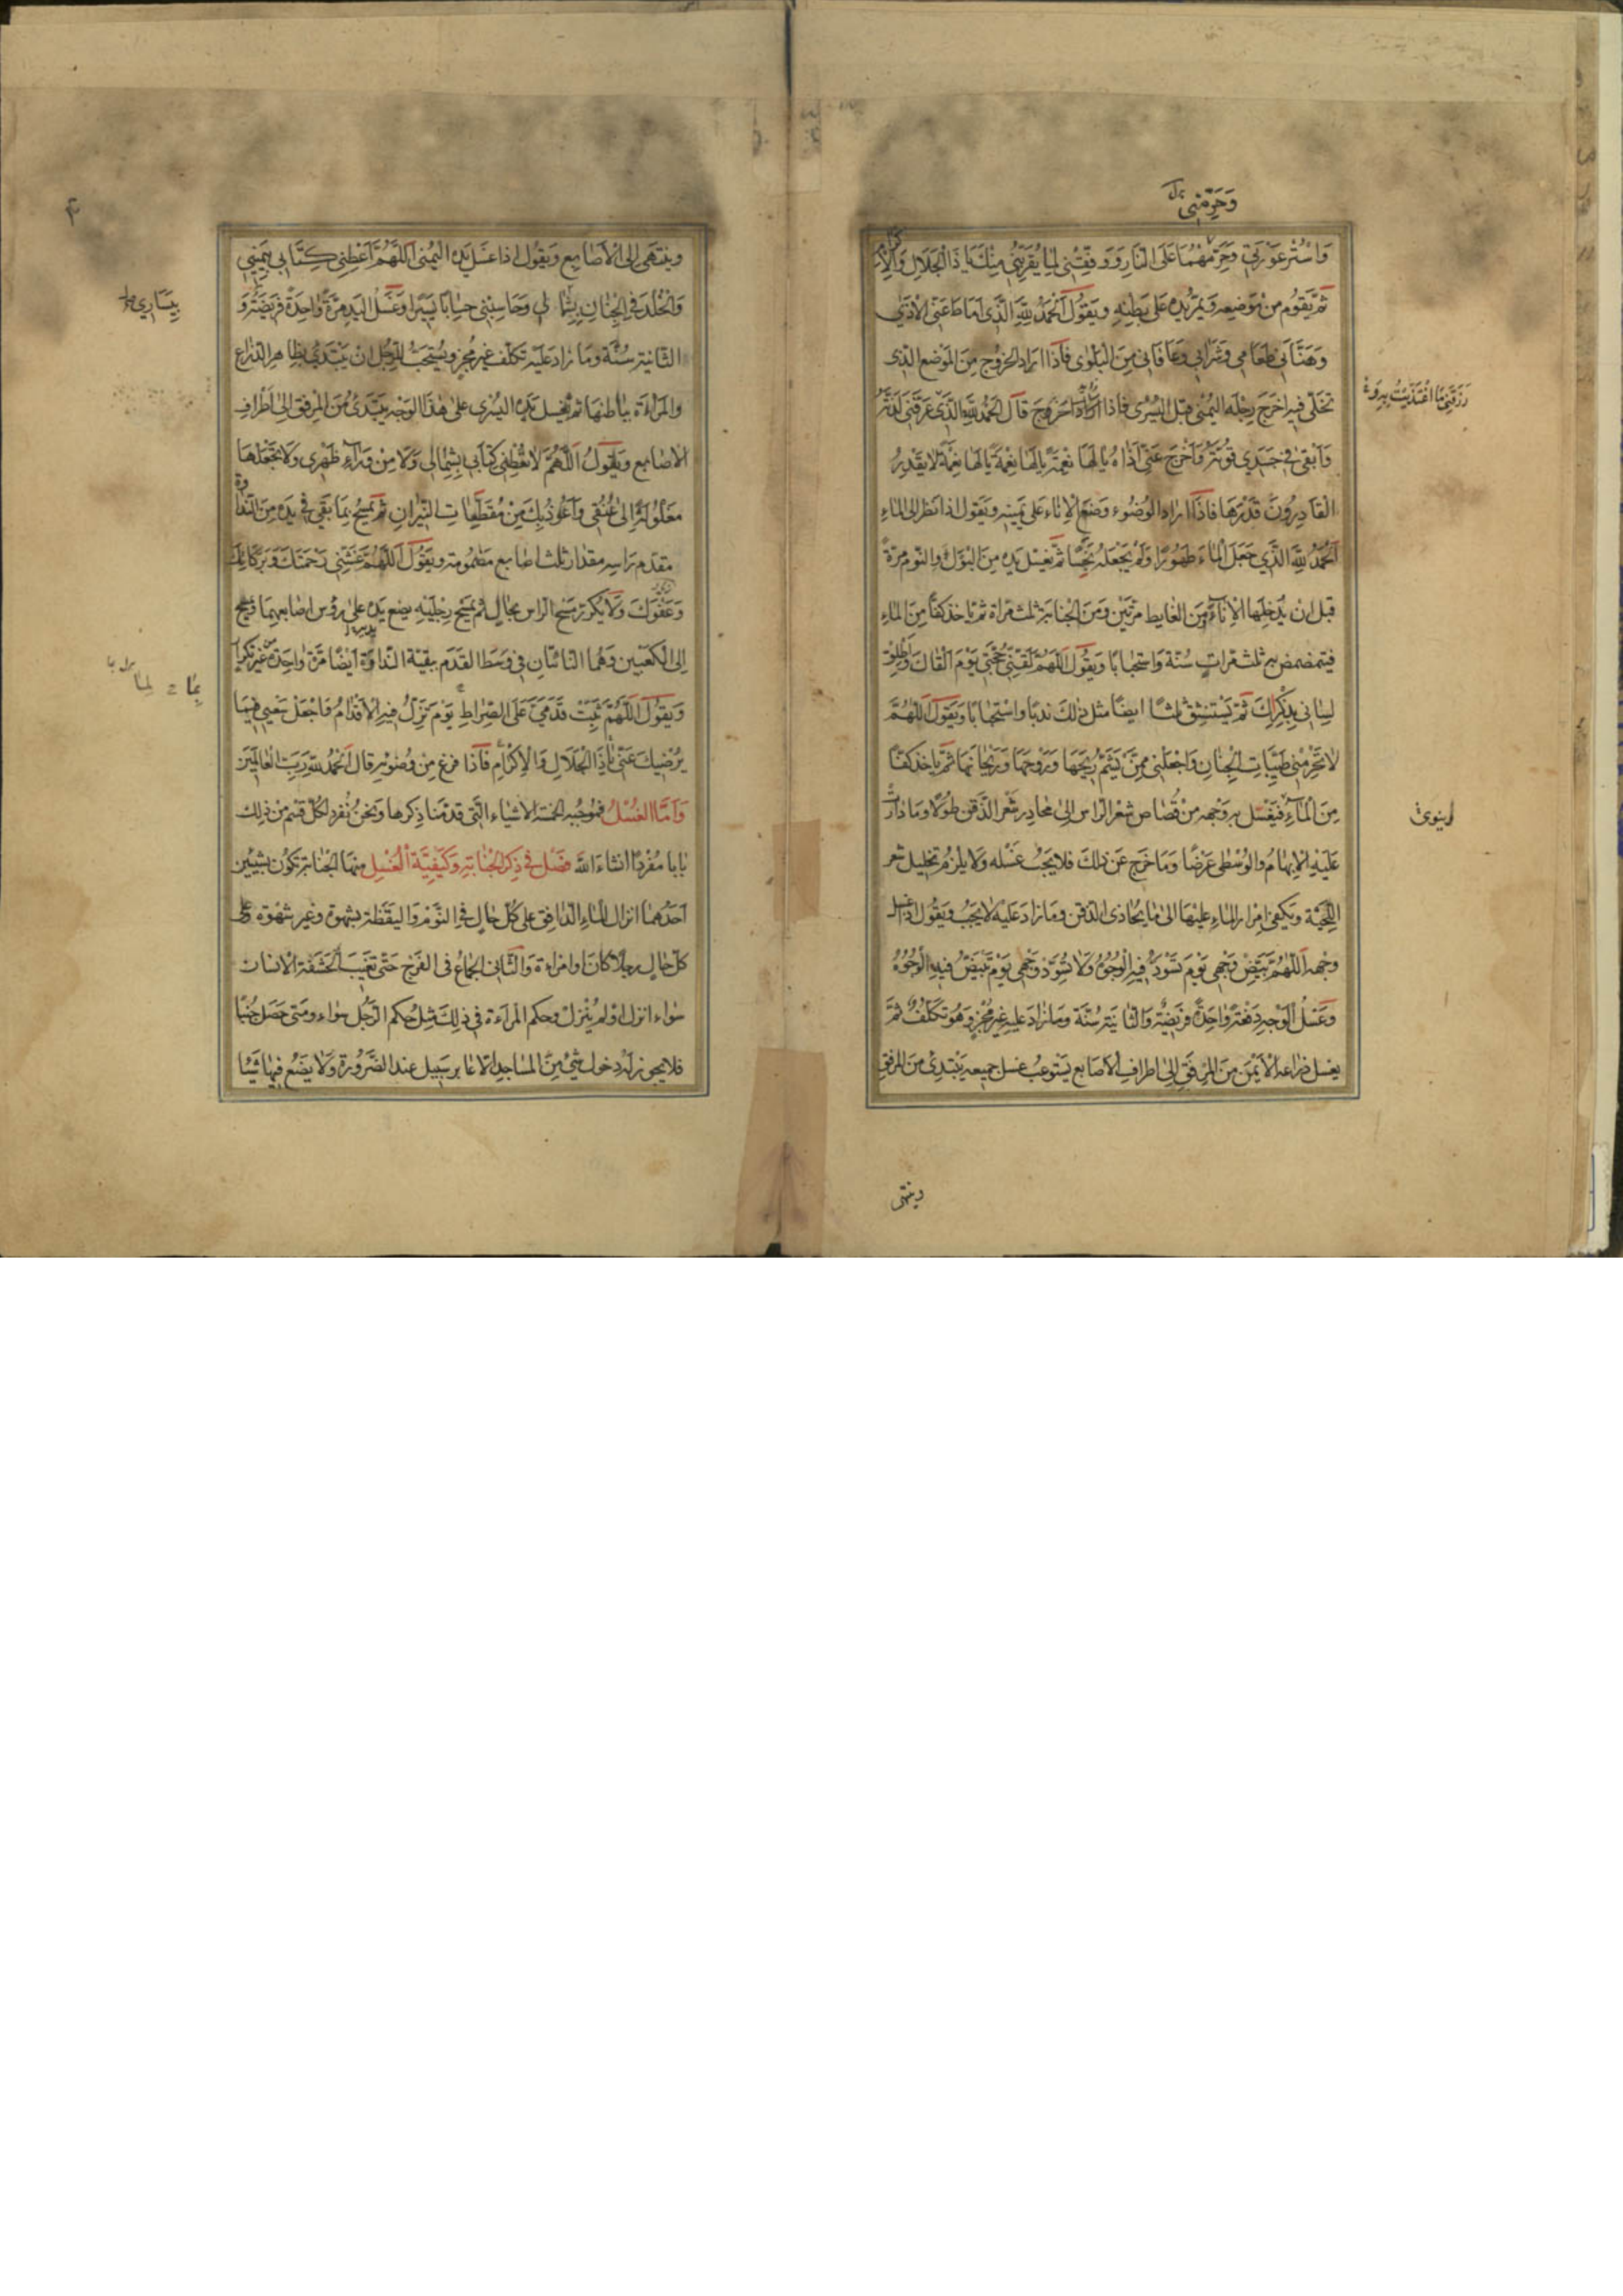 وَحَرِّمْنِي
وَاسْتُرْ عَوْرَتِي وَحَرِّمْهُمَا عَلَى النَّارِ وَوَفِّقْنِي لِمَا يُقَرِّبُنِي مِنْكَ يَا ذَا الْجَلَالِ وَالْإِكْرَامِ
ثُمَّ يَقُومُ مِنْ مَوْضِعِهِ وَيُمِرُّ يَدَهُ عَلَى بَطْنِهِ وَيَقُولُ اَلْحَمْدُ لِلّهِ الَّذِي اَمَاطَ عَنِّي الْاَذَى
وَهَنَّأَنِي طَعَامِي وَشَرَابِي وَعَافَانِي مِنَ الْبَلْوَى فَاِذَا اَرَادَ الْخُرُوجَ مِنَ الْمَوْضِعِ الَّذِي
تَخَلَّى فِيهِ اَخْرَجَ رِجْلَهُ الْيُمْنَى قَبْلَ الْيُسْرَى فَاِذَا خَرَجَ قَالَ اَلْحَمْدُ لِلّهِ الَّذِي عَرَّفَنِي لَذَّتَهُ
رَزَقَنِي مَا اغْتَذَيْتُ بِهِ
وَاَبْقَى فِي جَسَدِي قُوَّتَهُ وَاَخْرَجَ عَنِّي اَذَاهُ يَا لَهَا نِعْمَةً يَا لَهَا نِعْمَةً يَا لَهَا نِعْمَةً لَا يَقْدِرُ
الْقَادِرُونَ قَدْرَهَا فَاِذَا اَرَادَ الْوُضُوءَ وَضَعَ الْاِنَاءَ عَلَى يَمِينِهِ وَيَقُولُ اِذَا نَظَرَ اِلَى الْمَاءِ
اَلْحَمْدُ لِلّهِ الَّذِي جَعَلَ الْمَاءَ طَهُورًا وَلَمْ يَجْعَلْهُ نَجِسًا ثُمَّ يَغْسِلُ يَدَهُ مِنَ الْبَوْلِ وَالنَّوْمِ مَرَّةً
قَبْلَ اَنْ يُدْخِلَهَا الْاِنَاءَ وَمِنَ الْغَايِطِ مَرَّتَيْنِ وَمِنَ الْجَنَابَةِ ثَلَثَ مَرَّاةٍ ثُمَّ يَاخُذُ كَفًّا مِنَ الْمَاءِ
فَيَتَمَضْمَضُ بِهِ ثَلَثَ مَرَّاتٍ سُنَّةً وَاسْتِحْبَابًا وَيَقُولُ اَللّهُمَّ لَقِّنِي حُجَّتِي يَوْمَ اَلْقَاكَ وَاَطْلِقْ
لِسَانِي بِذِكْرِكَ ثُمَّ يَسْتَنْشِقُ ثَلَثًا اَيْضًا مِثْلَ ذَلِكَ نَدْبًا وَاسْتِحْبَابًا وَيَقُولُ اَللّهُمَّ
لَا تَحْرِمْنِي طَيِّبَاتِ الْجِنَانِ وَاجْعَلْنِي مِمَّنْ يَشَمُّ رِيحَهَا وَرَوْحَهَا وَرَيْحَانَهَا ثُمَّ يَاخُذُ كَفًّا
مِنَ الْمَاءِ فَيَغْسِلُ بِهِ وَجْهَهُ مِنْ قُصَاصِ شَعْرِ الرَّاسِ اِلَى مَحَادِرِ شَعْرِ الذَّقَنِ طُولًا وَمَا دَارَتْ
عَلَيْهِ الْاِبْهَامُ وَالْوُسْطَى عَرْضًا وَمَا خَرَجَ عَنْ ذَلِكَ فَلَا يَجِبُ غَسْلُهُ وَلَا يَلْزَمُ تَخْلِيلُ شَعْرِ
اللِّحْيَةِ وَيَكْفِي اِمْرَارُ الْمَاءِ عَلَيْهَا اِلَى مَا يُحَاذِي الذَّقَنَ وَمَا زَادَ عَلَيْهِ لَا يَجِبُ وَيَقُولُ اِذَا غَسَلَ
وَجْهَهُ اَللّهُمَّ بَيِّضْ وَجْهِي يَوْمَ تَسْوَدُّ فِيهِ الْوُجُوهُ وَلَا تُسَوِّدْ وَجْهِي يَوْمَ تَبْيَضُّ فِيهِ الْوُجُوهُ
وَغَسْلُ الْوَجْهِ دَفْعَةً وَاحِدَةً فَرِيضَةٌ وَالثَّانِيَةُ سُنَّةٌ وَمَا زَادَ عَلَيْهِ غَيْرُ مُجْزٍ وَهُوَ تَكَلُّفٌ ثُمَّ
يَغْسِلُ ذِرَاعَهُ الْاَيْمَنَ مِنَ الْمِرْفَقِ اِلَى اَطْرَافِ الْاَصَابِعِ يَسْتَوْعِبُ غَسْلَ جَمِيعِهِ يَبْتَدِئُ مِنَ الْمِرْفَقِ
وينتهى
وَيَنْتَهِي اِلَى الْاَصَابِعِ وَيَقُولُ اِذَا غَسَلَ يَدَهُ الْيُمْنَى اَللّهُمَّ اَعْطِنِي كِتَابِي بِيَمِينِي
وَالْخُلْدَ فِي الْجِنَانِ بِشِمَالِي وَحَاسِبْنِي حِسَابًا يَسِيرًا وَغَسْلُ الْيَدِ مَرَّةً وَاحِدَةً فَرِيضَةٌ وَ
بِيَسَارِي
الثَّانِيَةُ سُنَّةٌ وَمَا زَادَ عَلَيْهِ تَكَلُّفٌ غَيْرُ مُجْزٍ وَيُسْتَحَبُّ لِلرَّجُلِ اَنْ يَبْتَدِئَ بِظَاهِرِ الذِّرَاعِ
وَالْمَرْاَةُ بِبَاطِنِهَا ثُمَّ يَغْسِلُ يَدَهُ الْيُسْرَى عَلَى هَذَا الْوَجْهِ يَبْتَدِئُ مِنَ الْمِرْفَقِ اِلَى اَطْرَافِ
الْاَصَابِعِ وَيَقُولُ اَللّهُمَّ لَا تُعْطِنِي كِتَابِي بِشِمَالِي وَلَا مِنْ وَرَاءِ ظَهْرِي وَلَا تَجْعَلْهَا
مَغْلُولَةً اِلَى عُنُقِي وَاَعُوذُ بِكَ مِنْ مُقَطَّعَاتِ النِّيرَانِ ثُمَّ يَمْسَحُ بِمَا بَقِيَ فِي يَدِهِ مِنَ النَّدَاوَةِ
مُقَدَّمَ رَاسِهِ مِقْدَارَ ثَلَثِ اَصَابِعَ مَضْمُومَةٍ وَيَقُولُ اَللّهُمَّ غَشِّنِي رَحْمَتَكَ وَبَرَكَاتِكَ
وَعَفْوَكَ وَلَا يُكَرِّرُ مَسْحَ الرَّاسِ بِحَالٍ ثُمَّ يَمْسَحُ رِجْلَيْهِ يَضَعُ يَدَهُ عَلَى رُؤُسِ اَصَابِعِهِمَا وَيَمْسَحُ
اِلَى الْكَعْبَيْنِ وَهُمَا النَّاتِيَانِ فِي وَسَطِ الْقَدَمِ بِبَقِيَّةِ النَّدَاوَةِ اَيْضًا مَرَّةً وَاحِدَةً مِنْ غَيْرِ تَكْرَارٍ
وَيَقُولُ اَللّهُمَّ ثَبِّتْ قَدَمَيَّ عَلَى الصِّرَاطِ يَوْمَ تَزِلُّ فِيهِ الْاَقْدَامُ وَاجْعَلْ سَعْيِي فِيمَا
يُرْضِيكَ عَنِّي يَا ذَا الْجَلَالِ وَالْاِكْرَامِ فَاِذَا فَرَغَ مِنْ وُضُوئِهِ قَالَ اَلْحَمْدُ لِلّهِ رَبِّ الْعَالَمِينَ
وَاَمَّا الْغُسْلُ فَمُوجِبُهُ الْخَمْسَةُ الْاَشْيَاءِ الَّتِي قَدَّمْنَا ذِكْرَهَا وَنَحْنُ نُفْرِدُ لِكُلِّ قِسْمٍ مِنْ ذَلِكَ
بَابًا مُفْرَدًا اِنْشَاءَ اللّهُ فَصْلٌ فِي ذِكْرِ الْجَنَابَةِ وَكَيْفِيَّةِ الْغُسْلِ مِنْهَا الْجَنَابَةُ تَكُونُ بِشَيْئَيْنِ
اَحَدُهُمَا اِنْزَالُ الْمَاءِ الدَّافِقِ عَلَى كُلِّ حَالٍ فِي النَّوْمِ وَالْيَقَظَةِ بِشَهْوَةٍ وَغَيْرِ شَهْوَةٍ عَلَى
كُلِّ حَالٍ رَجُلًا كَانَ اَوِ امْرَاَةً وَالثَّانِي الْجِمَاعُ فِي الْفَرْجِ حَتَّى تَغِيبَ الْحَشَفَةُ الْاِنْسَانَ
سَوَاءٌ اَنْزَلَ اَوْ لَمْ يُنْزِلْ وَحُكْمُ الْمَرْاَةِ فِي ذَلِكَ مِثْلُ حُكْمِ الرَّجُلِ سَوَاءٌ وَمَتَى حَصَلَ جُنُبًا
فَلَا يَجُوزُ لَهُ دُخُولُ شَيْءٍ مِنَ الْمَسَاجِدِ اِلَّا عَابِرَ سَبِيلٍ عِنْدَ الضَّرُورَةِ وَلَا يَضَعُ فِيهَا شَيْئًا